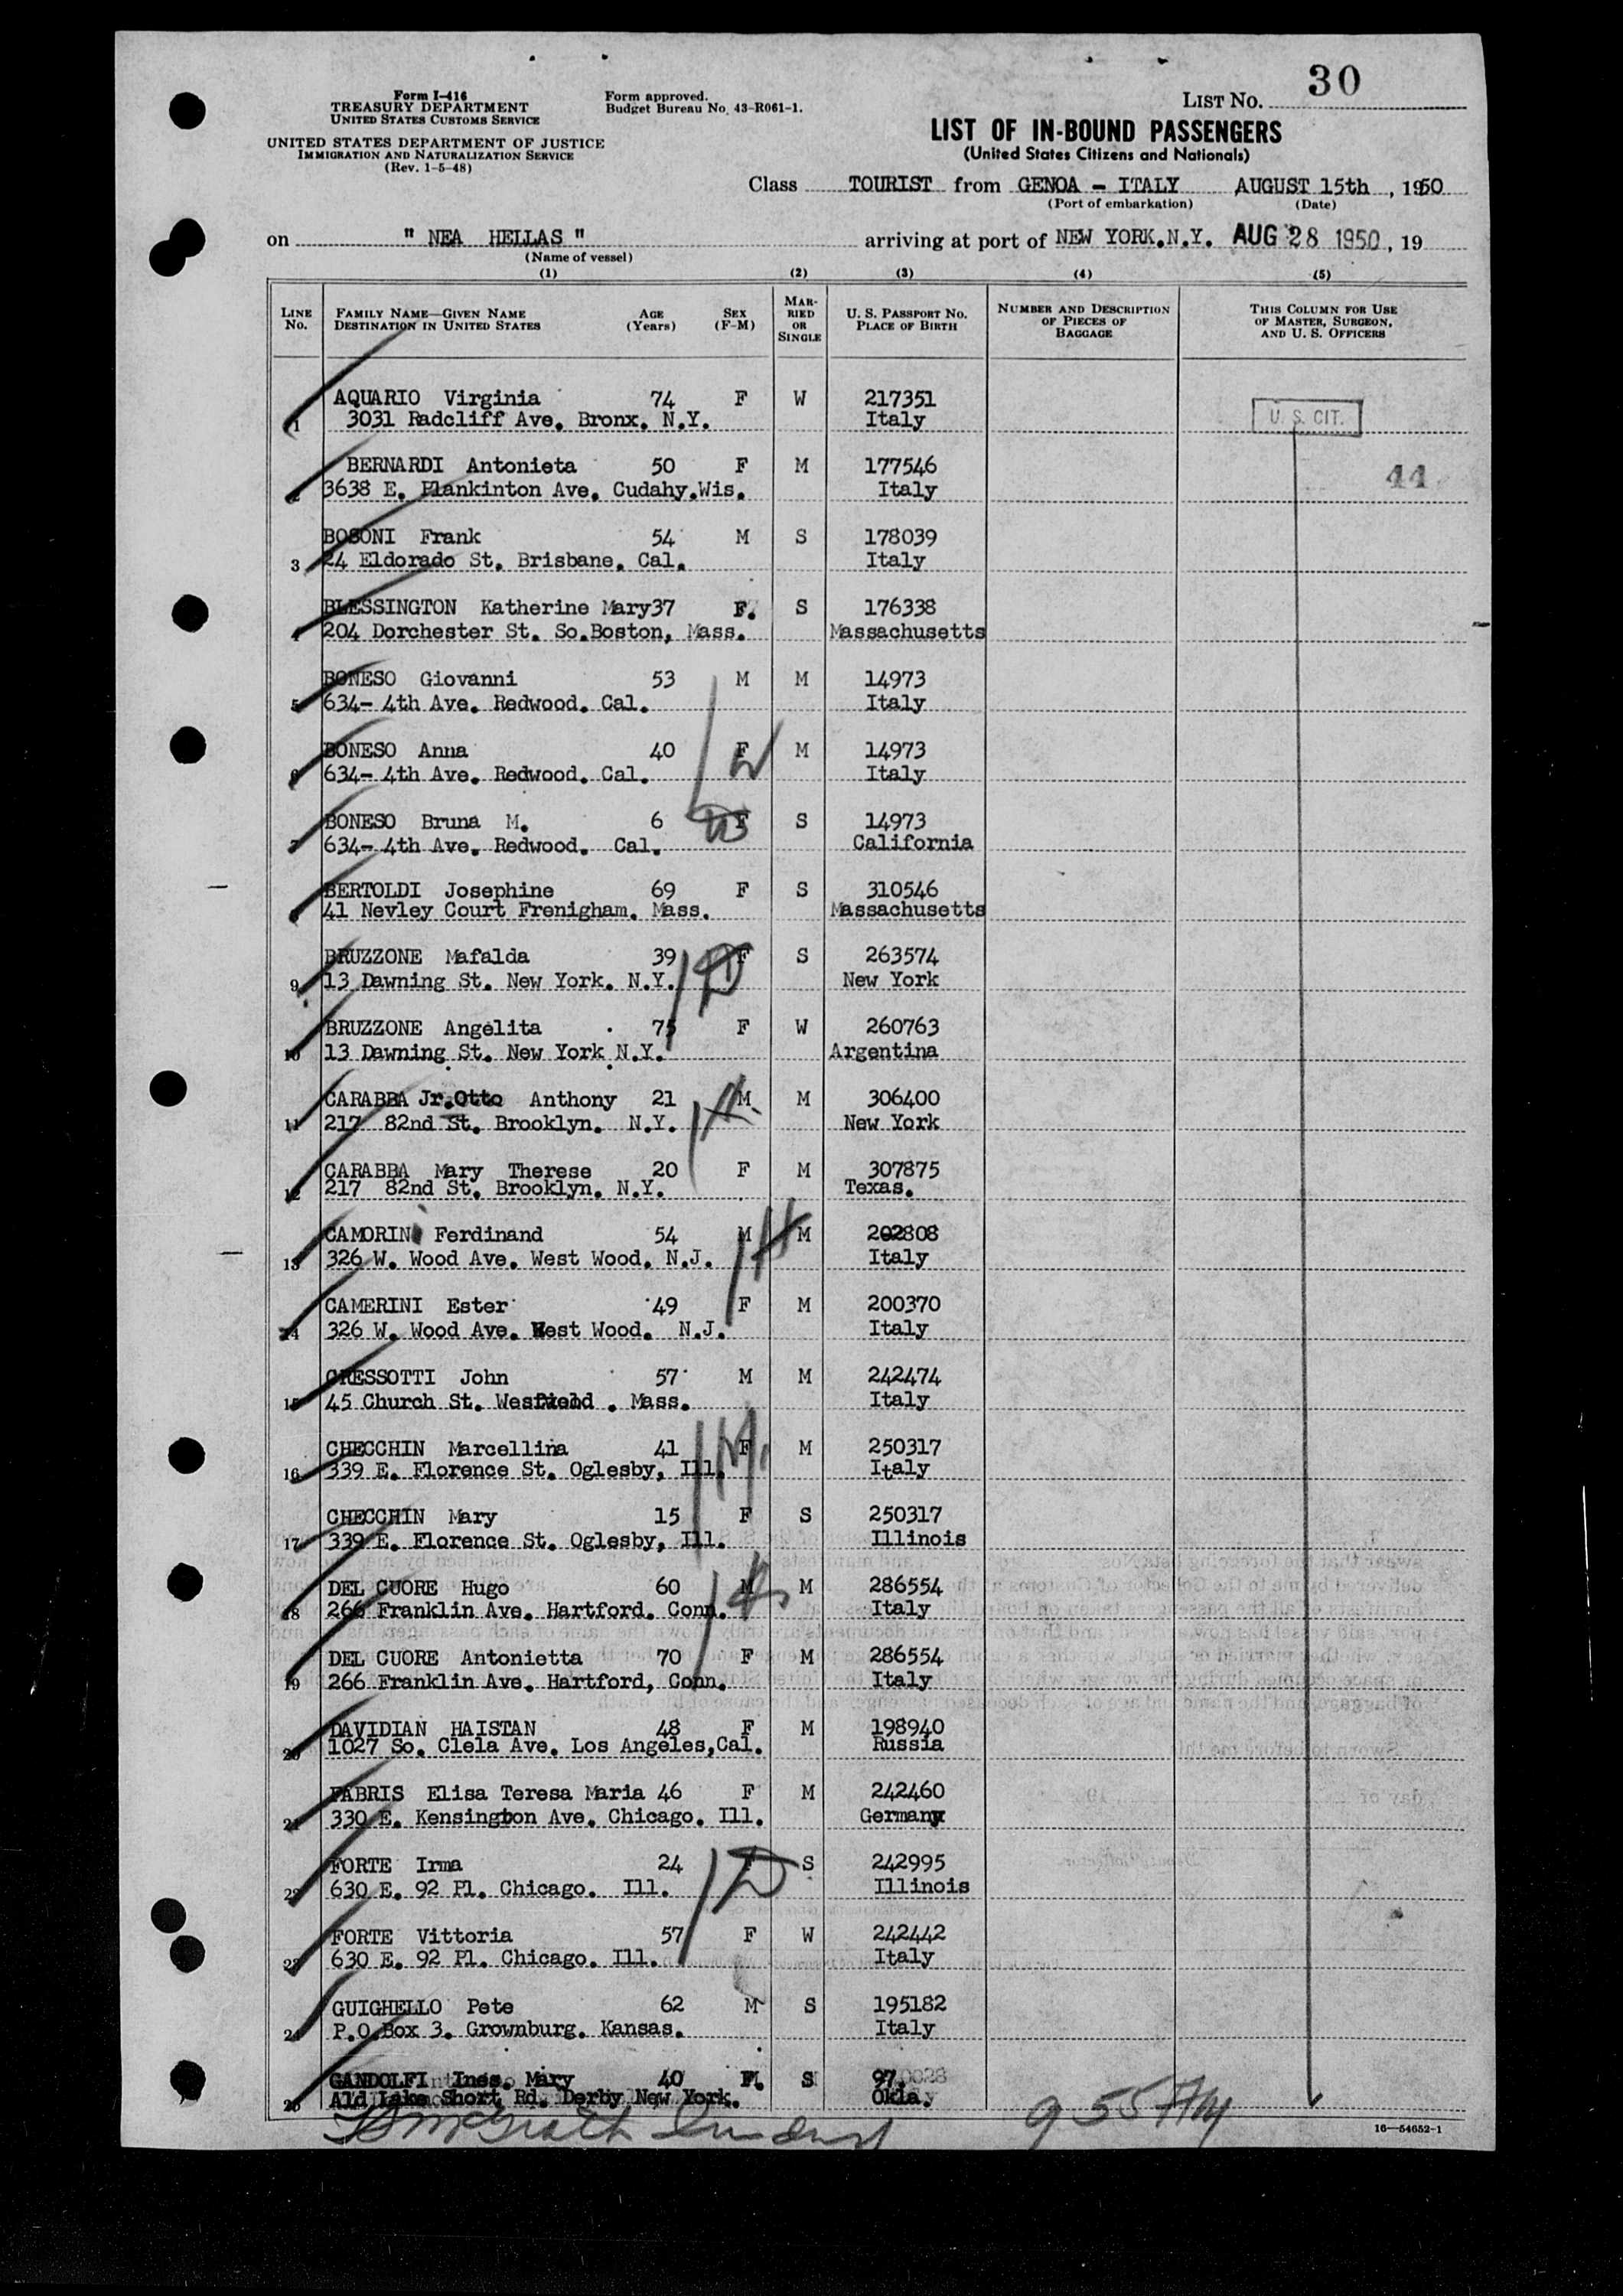 Form I-416
TREASURY DEPARTMENT
UNITED STATES CUSTOMS SERVICE
UNITED STATES DEPARTMENT OF JUSTICE
IMMIGRATION AND NATURALIZATION SERVICE
(Rev. 1-5-48)
Form approved.
Budget Bureau No. 43-R061-1.
LIST NO. 30
LIST OF IN-BOUND PASSENGERS
(United States Citizens and Nationals)
Class TOURIST from GENOA - ITALY AUGUST 15th, 1950
(Port of embarkation) (Date)
on " NEA HELLAS " arriving at port of NEW YORK.N.Y. AUG 28 1950, 19
(Name of vessel)
(1) (2) (3) (4) (5)
LINE No. FAMILY NAME—GIVEN NAME DESTINATION IN UNITED STATES AGE (Years) SEX (F-M) MARRIED OR SINGLE U. S. PASSPORT NO. PLACE OF BIRTH NUMBER AND DESCRIPTION OF PIECES OF BAGGAGE THIS COLUMN FOR USE OF MASTER, SURGEON, AND U. S. OFFICERS
AQUARIO Virginia 74 F W 217351
1 3031 Radcliff Ave. Bronx. N.Y. Italy U. S. CIT.
BERNARDI Antonieta 50 F M 177546 44
2 3638 E. Plankinton Ave. Cudahy.Wis. Italy
BOSONI Frank 54 M S 178039
3 24 Eldorado St. Brisbane. Cal. Italy
BLESSINGTON Katherine Mary37 F. S 176338
4 204 Dorchester St. So.Boston, Mass. Massachusetts
BONESO Giovanni 53 M M 14973
5 634- 4th Ave. Redwood. Cal. Italy
BONESO Anna 40 F M 14973
6 634- 4th Ave. Redwood. Cal. Italy
BONESO Bruna M. 6 F S 14973
7 634- 4th Ave. Redwood. Cal. California
BERTOLDI Josephine 69 F S 310546
8 41 Nevley Court Frenigham. Mass. Massachusetts
BRUZZONE Mafalda 39 F S 263574
9 13 Dawning St. New York. N.Y. New York
BRUZZONE Angelita 75 F W 260763
10 13 Dawning St. New York N.Y. Argentina
CARABBA Jr.Otto Anthony 21 M M 306400
11 217 82nd St. Brooklyn. N.Y. New York
CARABBA Mary Therese 20 F M 307875
12 217 82nd St. Brooklyn. N.Y. Texas.
CAMORINI Ferdinand 54 M M 202808
13 326 W. Wood Ave. West Wood. N.J. Italy
CAMERINI Ester 49 F M 200370
14 326 W. Wood Ave. West Wood. N.J. Italy
CRESSOTTI John 57 M M 242474
15 45 Church St. Westfield . Mass. Italy
CHECCHIN Marcellina 41 F M 250317
16 339 E. Florence St. Oglesby, Ill. Italy
CHECCHIN Mary 15 F S 250317
17 339 E. Florence St. Oglesby, Ill. Illinois
DEL CUORE Hugo 60 M M 286554
18 266 Franklin Ave. Hartford. Conn. Italy
DEL CUORE Antonietta 70 F M 286554
19 266 Franklin Ave. Hartford, Conn. Italy
DAVIDIAN HAISTAN 48 F M 198940
20 1027 So. Clela Ave. Los Angeles,Cal. Russia
FABRIS Elisa Teresa Maria 46 F M 242460
21 330 E. Kensington Ave. Chicago. Ill. Germany
FORTE Irma 24 F S 242995
22 630 E. 92 Pl. Chicago. Ill. Illinois
FORTE Vittoria 57 F W 242442
23 630 E. 92 Pl. Chicago. Ill. Italy
GUIGHELLO Pete 62 M S 195182
24 P.O.Box 3. Grownburg. Kansas. Italy
GANDOLFI Ines. Mary 40 F. S 97.
25 Ald Lake Short Rd. Derby New York. Okla.
16—54652-1